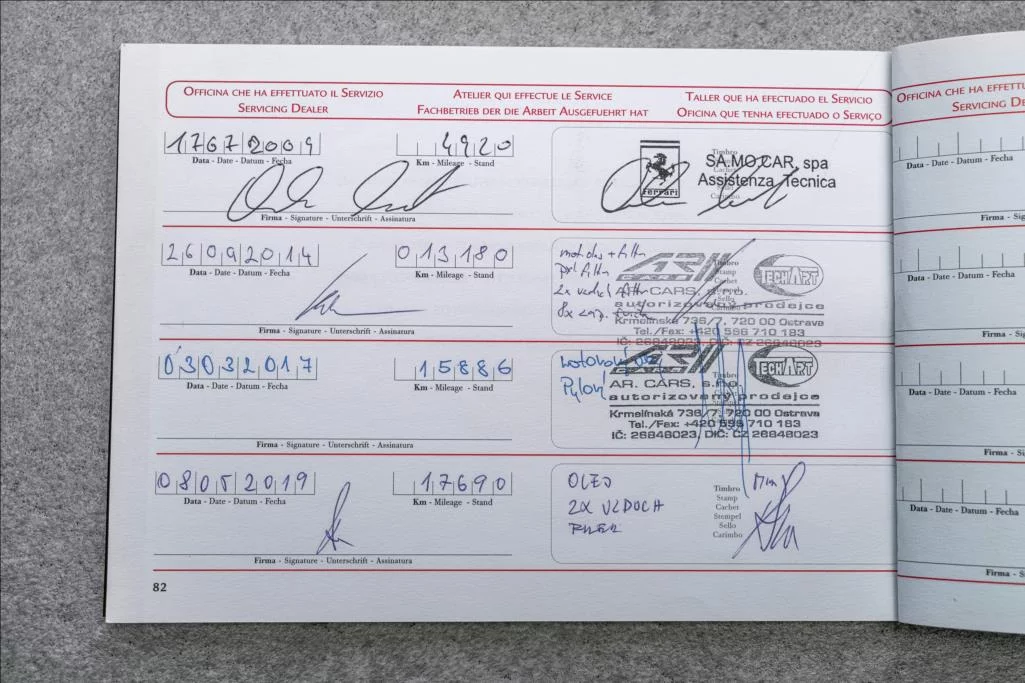 OFFICINA CHE HA EFFETTUATO IL SERVIZIO
SERVICING DEALER
ATELIER QUI EFFECTUE LE SERVICE
FACHBETRIEB DER DIE ARBEIT AUSGEFUEHRT HAT
TALLER QUE HA EFECTUADO EL SERVICIO
OFICINA QUE TENHA EFECTUADO O SERVIÇO
1 7 6 7 2 0 0 9
Data - Date - Datum - Fecha
4 9 2 0
Km - Mileage - Stand
Firma - Signature - Unterschrift - Assinatura
Ferrari
SA.MO.CAR, spa
Assistenza Tecnica
Timbro
Carimbo
2 6 0 9 2 0 1 4
Data - Date - Datum - Fecha
0 1 3 1 8 0
Km - Mileage - Stand
Firma - Signature - Unterschrift - Assinatura
2x
8x
TECHART
CARS, s.r.o.
autorizovaný prodejce
Krmelínská 736/7, 720 00 Ostrava
Tel./Fax: +420 596 710 183
IČ: 26848023, DIČ: CZ 26848023
Timbro
Stamp
Cachet
Stempel
Sello
Carimbo
0 3 0 3 2 0 1 7
Data - Date - Datum - Fecha
1 5 8 8 6
Km - Mileage - Stand
Firma - Signature - Unterschrift - Assinatura
Pylový
TECHART
AR. CARS, s.r.o.
autorizovaný prodejce
Krmelínská 736/7, 720 00 Ostrava
Tel./Fax: +420 596 710 183
IČ: 26848023, DIČ: CZ 26848023
0 8 0 5 2 0 1 9
Data - Date - Datum - Fecha
1 7 6 9 0
Km - Mileage - Stand
Firma - Signature - Unterschrift - Assinatura
OLEJ
2X VZDUCH
Timbro
Stamp
Cachet
Stempel
Sello
Carimbo
82
OFFICINA CHE HA EFFETTU
SERVICING DE
Data - Date - Datum - Fecha
Firma - Si
Data - Date - Datum - Fecha
Firma - Si
Data - Date - Datum - Fecha
Firma - Si
Data - Date - Datum - Fecha
Firma - S